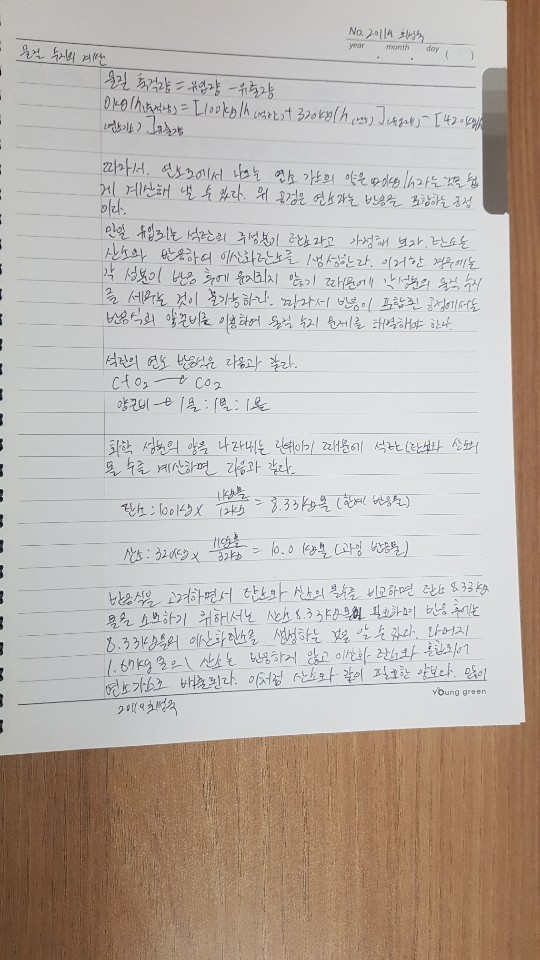 No. 20119 최성욱
year month day ( )
물질 수지의 계산
물질 축적량 = 유입량 - 유출량
0kg/h(축적량) = [100kg/h (석탄) + 320kg/h (산소) ] (유입량) - [420kg/h
(연소가스) ] 유출량
따라서, 연소로에서 나오는 연소 가스의 양은 420kg/h라는 것을 쉽
게 계산해 낼 수 있다. 위 공정은 연소라는 반응을 포함하는 공정
이다.
만일 유입되는 석탄의 주성분이 탄소라고 가정해 보자. 탄소는
산소와 반응하여 이산화탄소를 생성한다. 이러한 경우에는
각 성분이 반응 후에 유지되지 않기 때문에 각 성분의 물질 수지
를 세우는 것이 불가능하다. 따라서 반응이 포함된 공정에서는
반응식의 양론비를 이용하여 물질 수지 문제를 해결해야 한다.
석탄의 연소 반응식은 다음과 같다.
C + O2 → CO2
양론비 → 1몰 : 1몰 : 1몰
화학 성분의 양을 나타내는 단위이기 때문에 석탄(탄소)와 산소의
몰 수를 계산하면 다음과 같다.
탄소 : 100kg × 1kg몰/12kg = 8.33kg몰 (한계 반응물)
산소 : 320kg × 1kg몰/32kg = 10.0kg몰 (과잉 반응물)
반응식을 고려하면서 탄소와 산소의 몰수를 비교하면 탄소 8.33kg
몰을 소모하기 위해서는 산소 8.33kg몰이 필요하며 반응 후에는
8.33kg몰의 이산화탄소를 생성하는 것을 알 수 있다. 나머지
1.67kg몰의 산소는 반응하지 않고 이산화 탄소와 혼합되어
연소가스로 배출된다. 이처럼 산소와 같이 필요한 양보다 많이
20119 최성욱
Young green